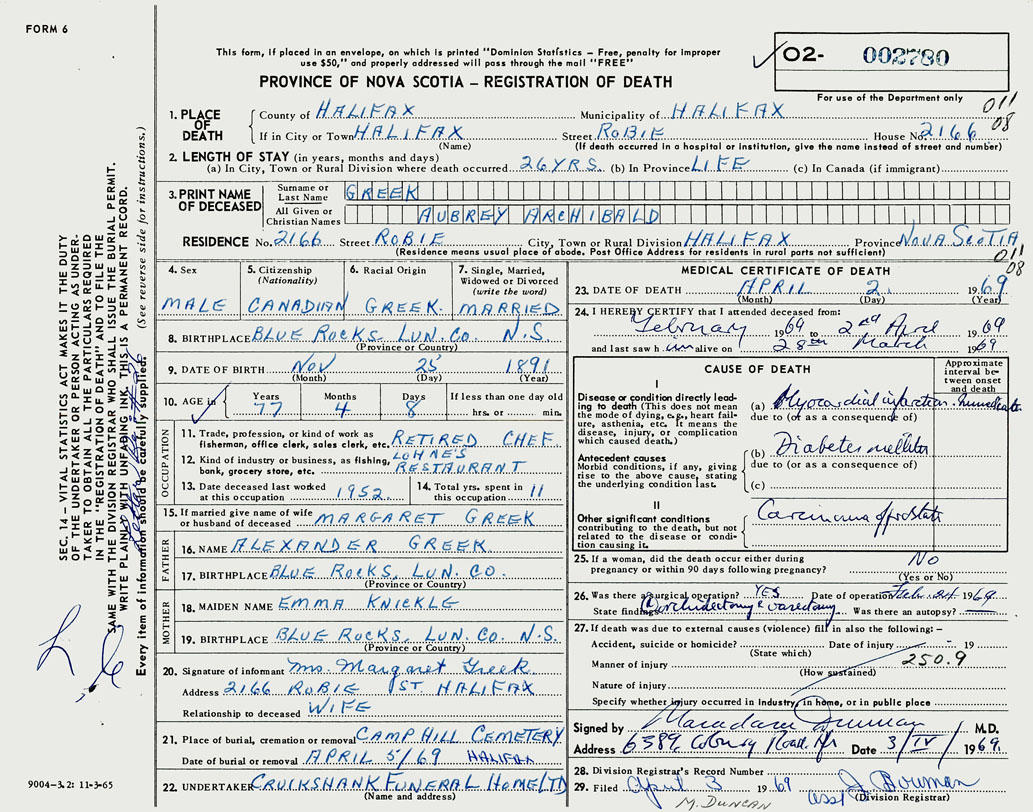 FORM 6
This form, if placed in an envelope, on which is printed "Dominion Statistics – Free, penalty for improper
use $50," and properly addressed will pass through the mail "FREE"
PROVINCE OF NOVA SCOTIA – REGISTRATION OF DEATH
O2- 002780
For use of the Department only
011
08
1. PLACE OF DEATH
County of HALIFAX Municipality of HALIFAX
If in City or Town HALIFAX Street ROBIE House No. 2166
(Name) (If death occurred in a hospital or institution, give the name instead of street and number)
2. LENGTH OF STAY (in years, months and days)
(a) In City, Town or Rural Division where death occurred 26 YRS. (b) In Province LIFE (c) In Canada (if immigrant)
3. PRINT NAME OF DECEASED
Surname or Last Name GREEK
All Given or Christian Names AUBREY ARCHIBALD
RESIDENCE No. 2166 Street ROBIE City, Town or Rural Division HALIFAX Province NOVA SCOTIA
(Residence means usual place of abode. Post Office Address for residents in rural parts not sufficient)
011
08
4. Sex
MALE
5. Citizenship (Nationality)
CANADIAN
6. Racial Origin
GREEK
7. Single, Married, Widowed or Divorced (write the word)
MARRIED
8. BIRTHPLACE BLUE ROCKS LUN. CO. N.S.
(Province or Country)
9. DATE OF BIRTH NOV 25 1891
(Month) (Day) (Year)
10. AGE in Years 77 Months 4 Days 8 If less than one day
hrs. or min.
OCCUPATION
11. Trade, profession, or kind of work as
fisherman, office clerk, sales clerk, etc. RETIRED CHEF
12. Kind of industry or business, as fishing, LOHNE'S
bank, grocery store, etc. RESTAURANT
13. Date deceased last worked
at this occupation 1952
14. Total yrs. spent in
this occupation 11
15. If married give name of wife
or husband of deceased MARGARET GREEK
FATHER
16. NAME ALEXANDER GREEK
17. BIRTHPLACE BLUE ROCKS, LUN. CO.
(Province or Country)
MOTHER
18. MAIDEN NAME EMMA KNICKLE
19. BIRTHPLACE BLUE ROCKS, LUN. CO. N.S.
(Province or Country)
20. Signature of informant Mrs. Margaret Greek
Address 2166 ROBIE ST. HALIFAX
Relationship to deceased WIFE
21. Place of burial, cremation or removal CAMP HILL CEMETERY
Date of burial or removal APRIL 5/69 HALIFAX
22. UNDERTAKER CRUIKSHANK FUNERAL HOME LTD
(Name and address)
MEDICAL CERTIFICATE OF DEATH
23. DATE OF DEATH APRIL 2 1969
(Month) (Day) (Year)
24. I HEREBY CERTIFY that I attended deceased from:
February 1969 to 2nd April 1969
and last saw him alive on 28th March 1969
CAUSE OF DEATH
Approximate interval between onset and death
I
Disease or condition directly lead-
ing to death (This does not
mean the mode of dying, e.g., heart fail-
ure, asthenia, etc. It means the
disease, injury, or complication
which caused death.)
(a) Myocardial infarction. Immediate
due to (or as a consequence of)
Antecedent causes
Morbid conditions, if any, giving
rise to the above cause, stating
the underlying condition last.
(b) Diabetes mellitus
due to (or as a consequence of)
(c)
II
Other significant conditions
contributing to the death, but not
related to the disease or condi-
tion causing it.
Carcinoma of prostate
25. If a woman, did the death occur either during
pregnancy or within 90 days following pregnancy? No
(Yes or No)
26. Was there a Surgical operation? YES Date of operation Feb. 24 1969
State findings Orchidectomy & vasectomy Was there an autopsy?
27. If death was due to external causes (violence) fill in also the following: –
Accident, suicide or homicide? Date of injury 19
(State which)
Manner of injury 250.9
(How sustained)
Nature of injury
Specify whether injury occurred in industry, in home, or in public place
Signed by M.D.
Address 6389 Coburg Road, Hfx Date 3/IV/1969
28. Division Registrar's Record Number
29. Filed April 3 1969 J. Bowman
(Division Registrar)
M. DUNCAN Asst
SEC. 14 – VITAL STATISTICS ACT MAKES IT THE DUTY
OF THE UNDERTAKER OR PERSON ACTING AS UNDER-
TAKER TO OBTAIN ALL THE PARTICULARS REQUIRED
IN THE "REGISTRATION OF DEATH" AND TO FILE THE
SAME WITH THE DIVISION REGISTRAR WHO SHALL ISSUE THE BURIAL PERMIT.
WRITE PLAINLY WITH UNFADING INK. THIS IS A PERMANENT RECORD.
Every item of information should be carefully supplied. (See reverse side for instructions.)
9004-3.2: 11-3-65